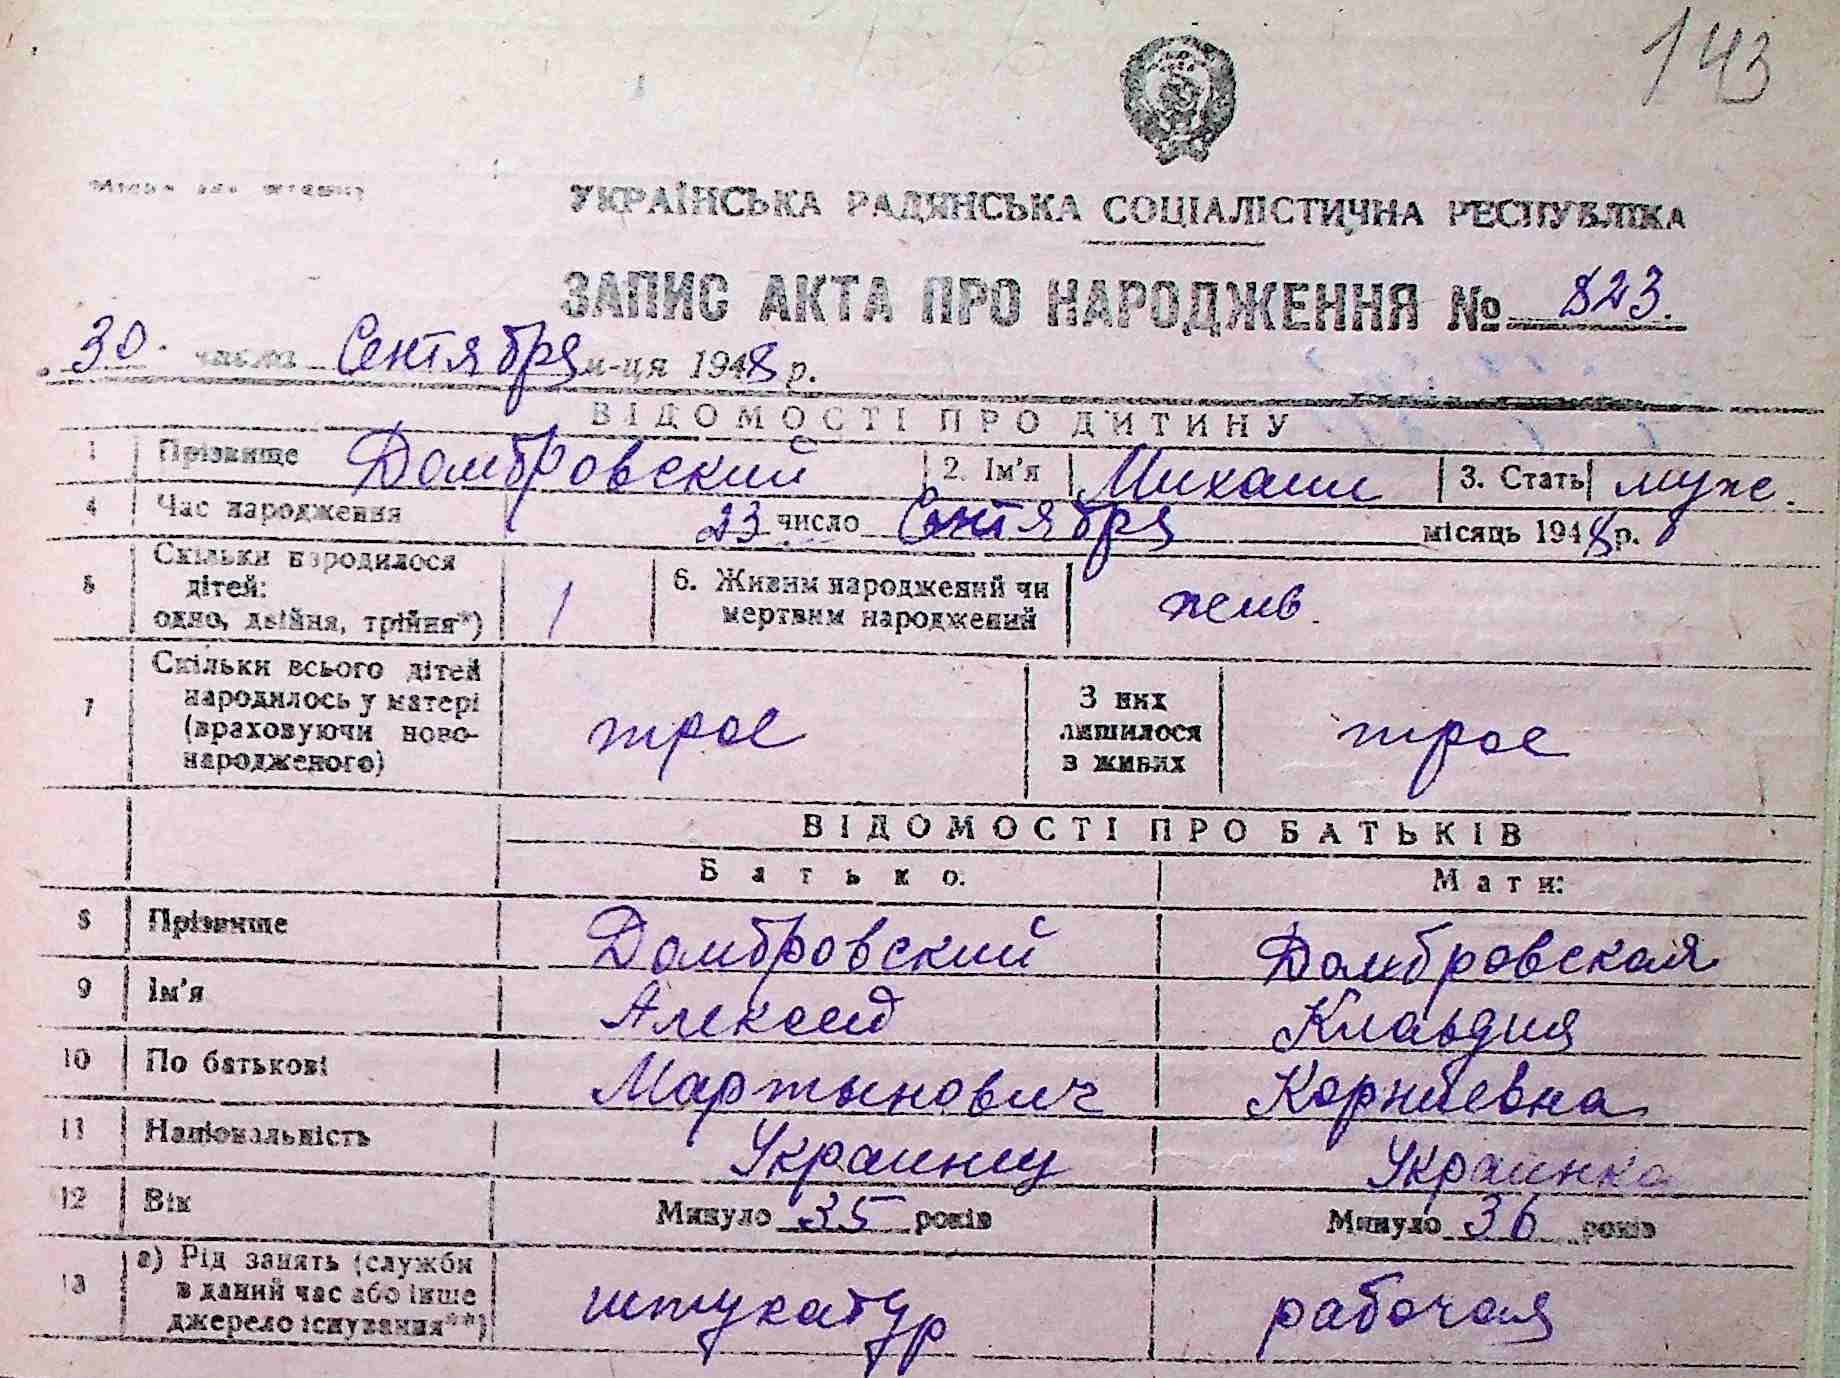 143
УКРАЇНСЬКА РАДЯНСЬКА СОЦІАЛІСТИЧНА РЕСПУБЛІКА
ЗАПИС АКТА ПРО НАРОДЖЕННЯ № 823.
30. числа Сентября м-ця 1948 р.
ВІДОМОСТІ ПРО ДИТИНУ
1 Прізвище Домбровский 2. Ім'я Михаил 3. Стать муж.
4 Час народження 23 число Сентября місяць 1948 р.
5 Скільки народилося
дітей:
одно, двійня, трійня*) 1 6. Живим народжений чи
мертвим народжений жив.
7 Скільки всього дітей
народилось у матері
(враховуючи ново-
народженого) трое З них
лишилося
в живих трое
ВІДОМОСТІ ПРО БАТЬКІВ
Батько: Мати:
8 Прізвище Домбровский Домбровская
9 Ім'я Алексей Клавдия
10 По батькові Мартынович Корнеевна
11 Національність Украинец Украинка
12 Вік Минуло 35 років Минуло 36 років
13 а) Рід занять (служби
в даний час або інше
джерело існування**) штукатур рабочая